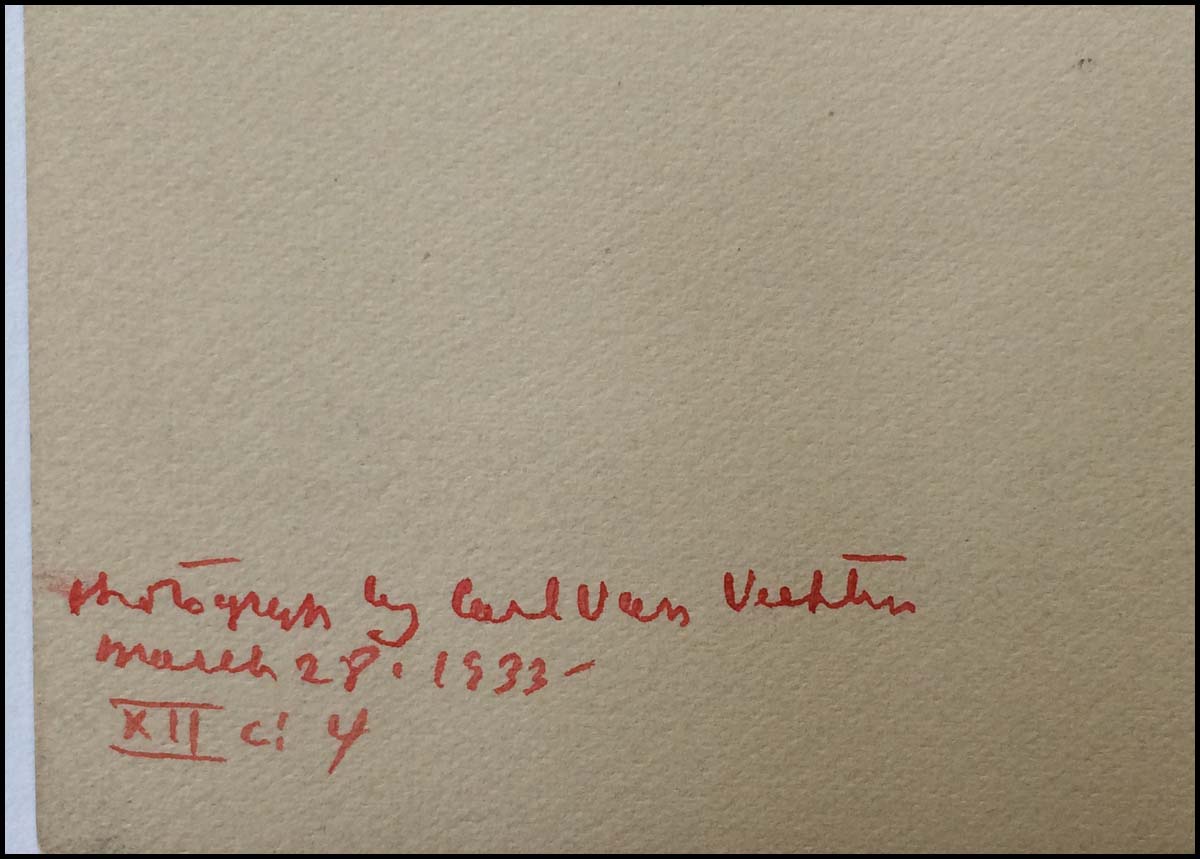 Photograph by Carl Van Vechten
March 28. 1933-
XII c: 4